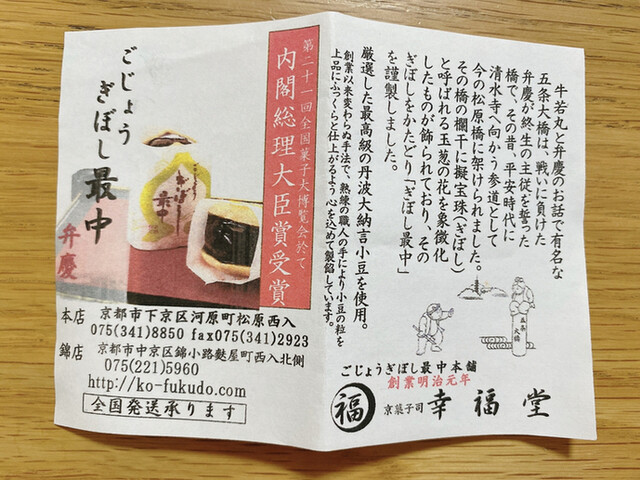 牛若丸と弁慶のお話で有名な
五条大橋は、戦いに負けた
弁慶が終生の主従を誓った
橋で、その昔、平安時代に
清水寺へ向かう参道として
今の松原橋に架けられました。
その橋の欄干に擬宝珠(ぎぼし)
と呼ばれる玉葱の花を象徴化
したものが飾られており、その
ぎぼしをかたどり「ぎぼし最中」
を謹製しました。
厳選した最高級の丹波大納言小豆を使用。
創業以来変わらぬ手法で、熟練の職人の手により小豆の粒を
上品にふっくらと仕上がるよう心を込めて製餡しています。
五条
大橋
ごじょうぎぼし最中本舗
創業明治元年
福
京菓子司 幸福堂
第二十一回全国菓子大博覧会於て
内閣総理大臣賞受賞
ごじょう
ぎぼし最中
弁慶
ぎぼし
最中
本店 京都市下京区河原町松原西入
075(341)8850 fax075(341)2923
錦店 京都市中京区錦小路麩屋町西入北側
075(221)5960
http://ko-fukudo.com
全国発送承ります